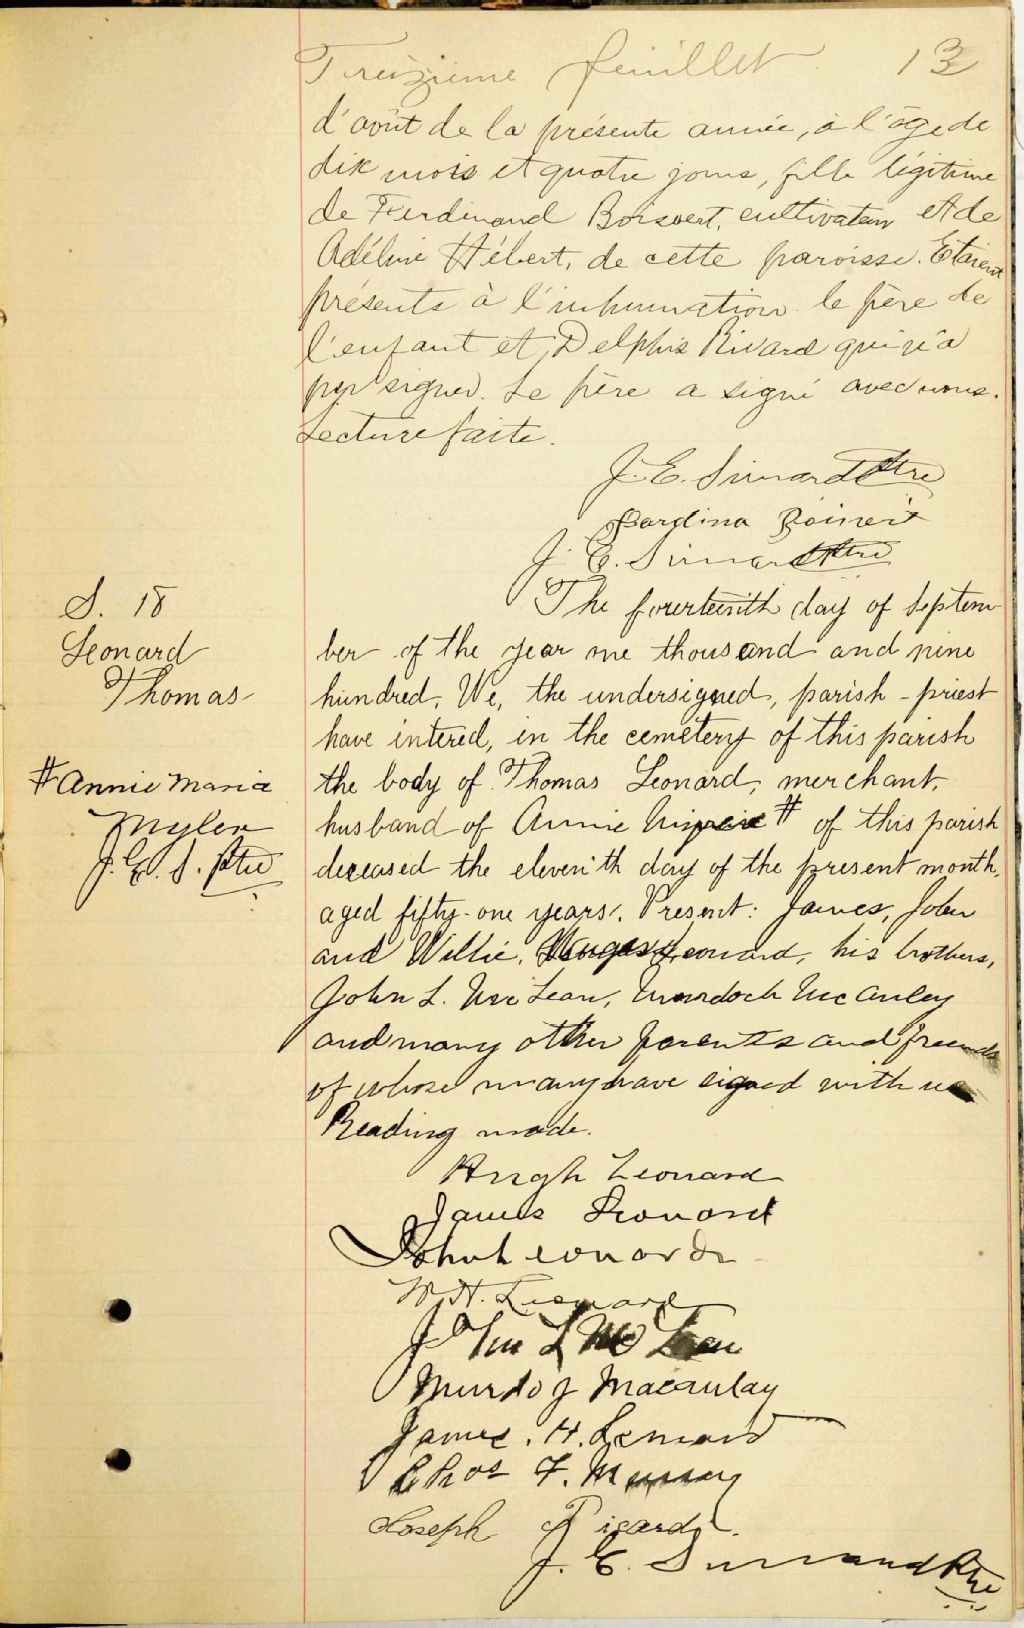 Treizième feuillet 13
d'août de la présente année, à l'âge de
dix mois et quatre jours, fille légitime
de Ferdinand Boisvert, cultivateur et de
Adéline Hébert, de cette paroisse. Etaient
présents à l'inhumation le père de
l'enfant et Delphis Rivard qui n'a
pu signer. Le père a signé avec nous.
Lecture faite.
J. E. Simard Ptre
J. E. Simard Ptre
S. 18
Leonard
Thomas
The fourteenth day of Septem
ber of the year one thousand and nine
hundred, We, the undersigned, parish-priest
have intered, in the cemetery of this parish
the body of Thomas Leonard, merchant,
husband of Annie # of this parish
# Annie Maria
Mylen
J. E. S. Ptre
deceased the eleventh day of the present month,
aged fifty-one years. Present: James, John
and Willie, Leonard, his brothers,
John L. McLean, Murdoch McAuley
and many other parents and friends
of whose many have signed with us
Reading made.
Hugh Leonard
James Leonard
John Leonard
W. H. Leonard
John L McLean
Murdo J Macaulay
James. H. Leonard
Chas F. Murray
Joseph Picard.
J. E. Simard Ptre